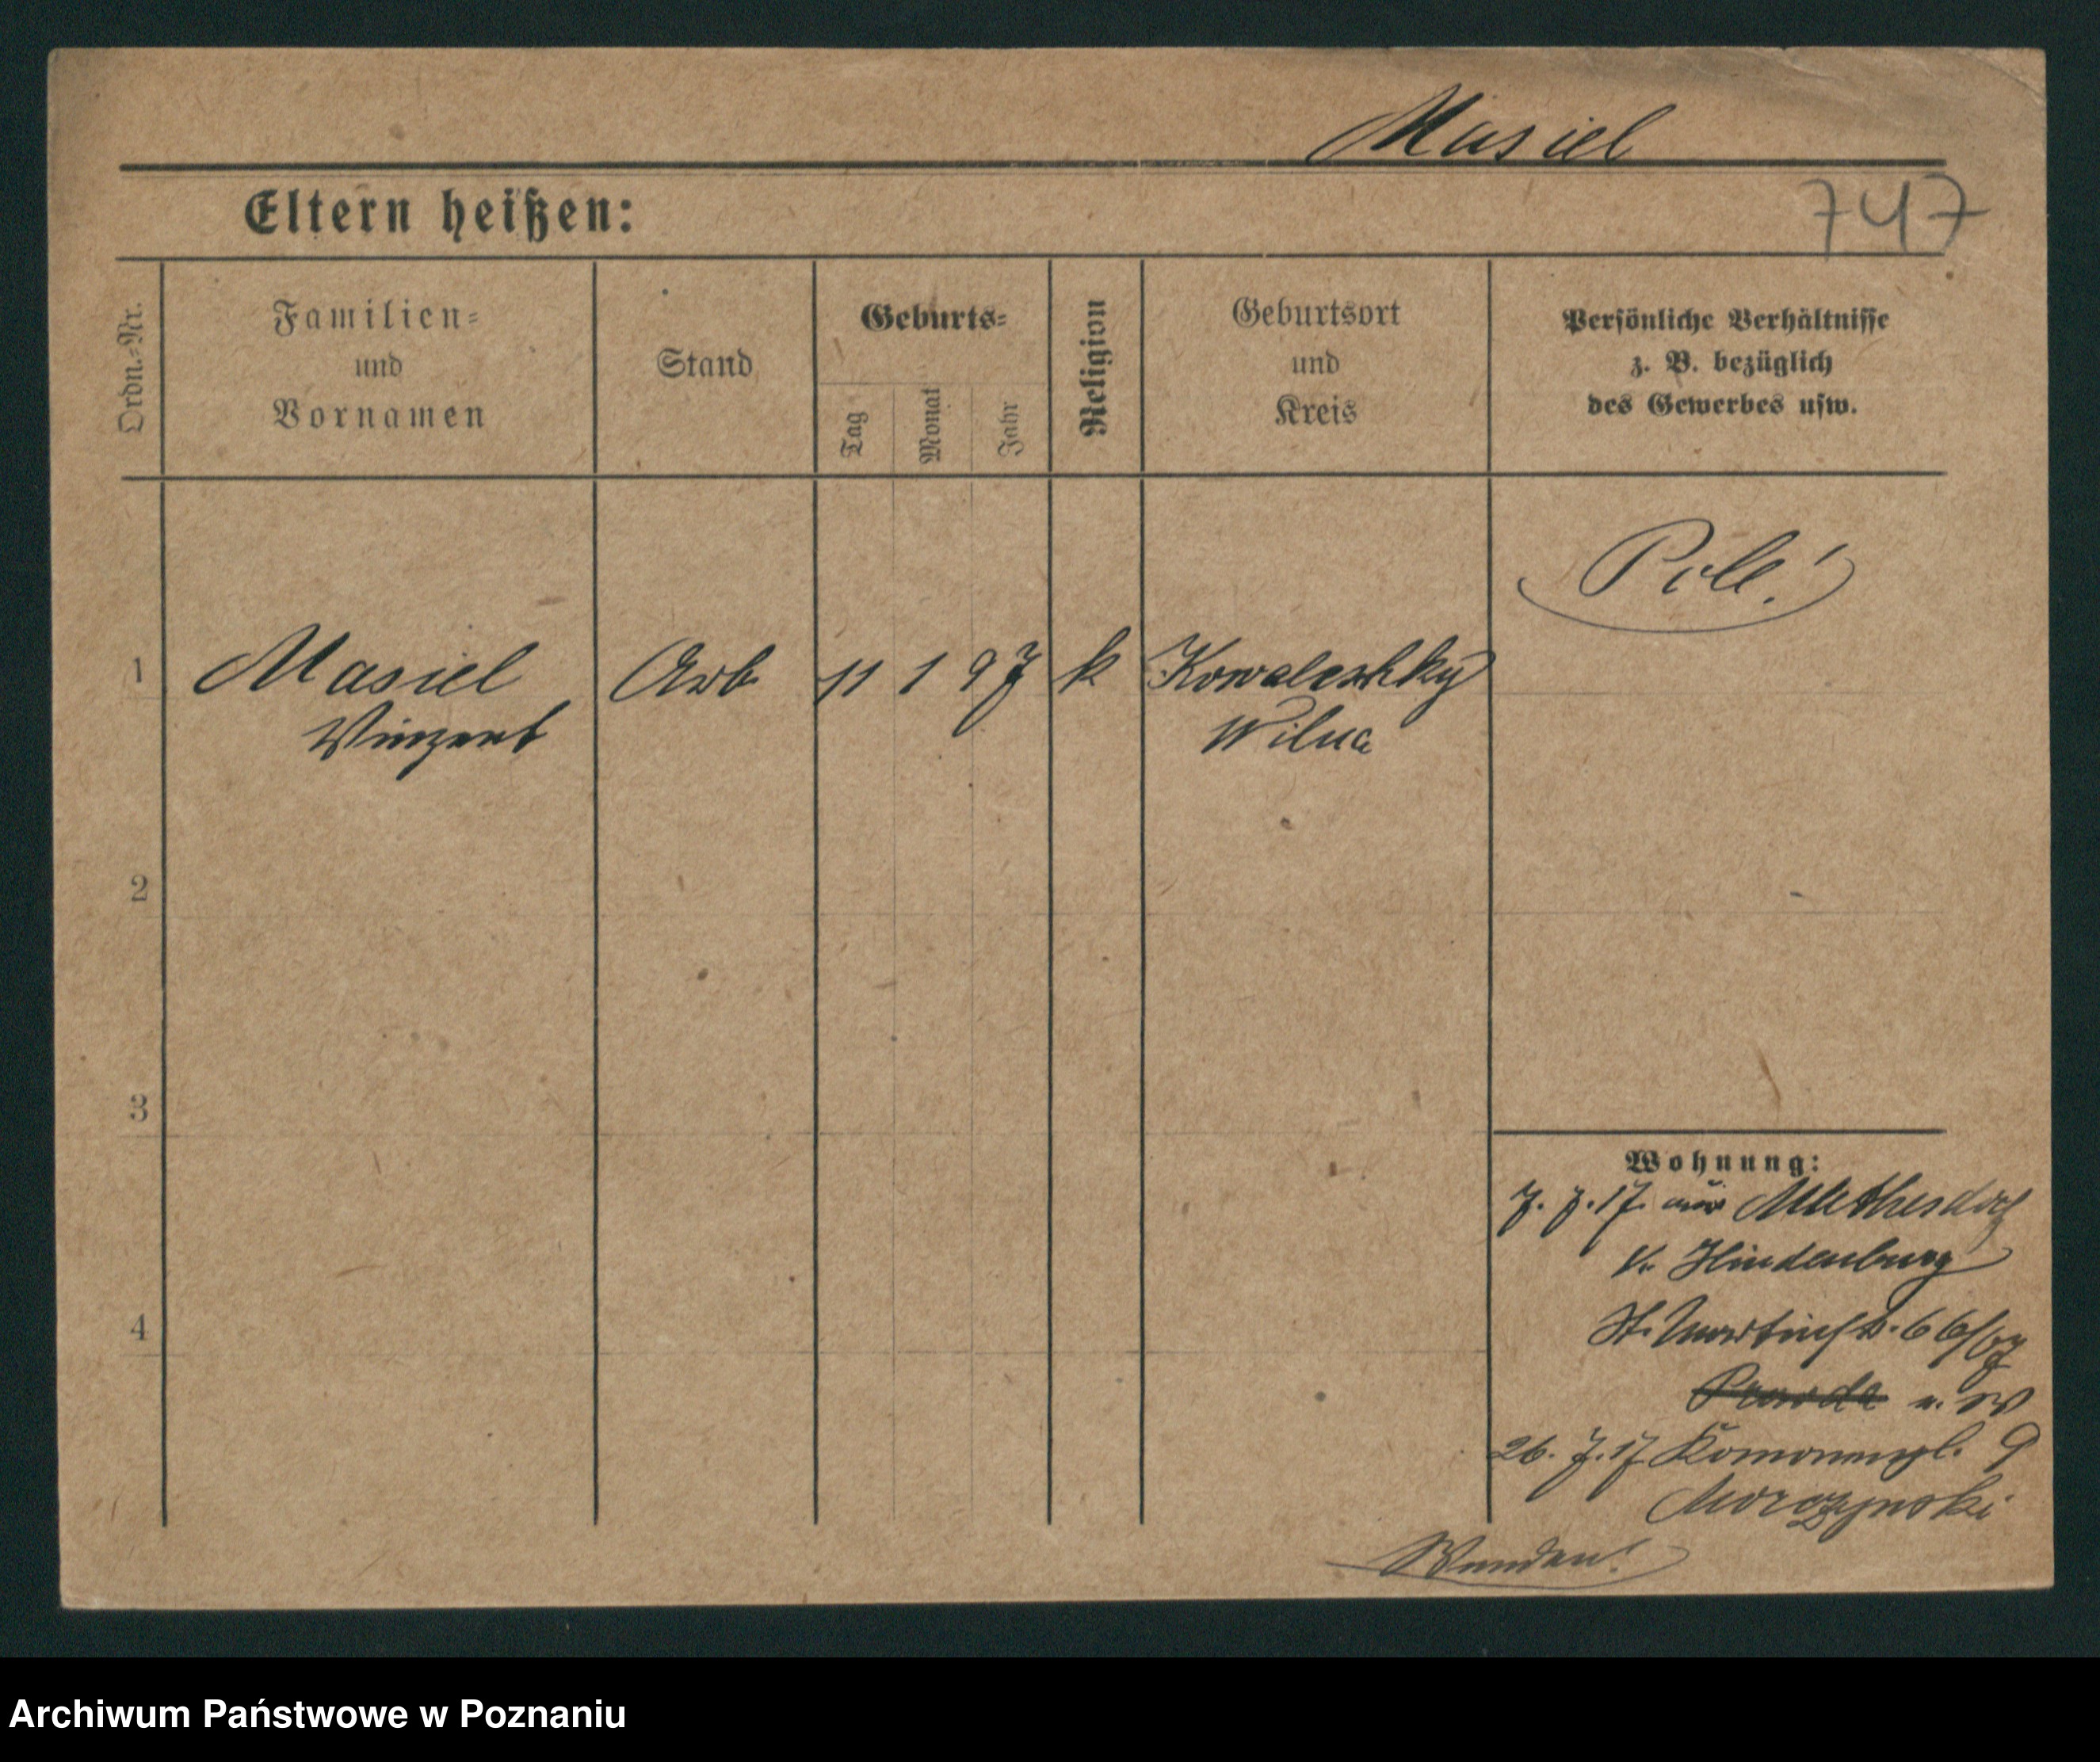 Masiel
Eltern heißen:
747
Ordn.=Nr.
Familien=
und
Vornamen
Stand
Geburts=
Tag
Monat
Jahr
Religion
Geburtsort
und
Kreis
Persönliche Verhältnisse
z. B. bezüglich
des Gewerbes usw.
Pole!
1
Masiel
Vinzent
Arb.
11
1
97
k
Wilna
2
3
4
Wohnung:
7. 7. 17. aus Mathesdorf
K. Hindenburg
St. Martinstr. 66/67
26. 7. 17
Morczynski
Archiwum Państwowe w Poznaniu